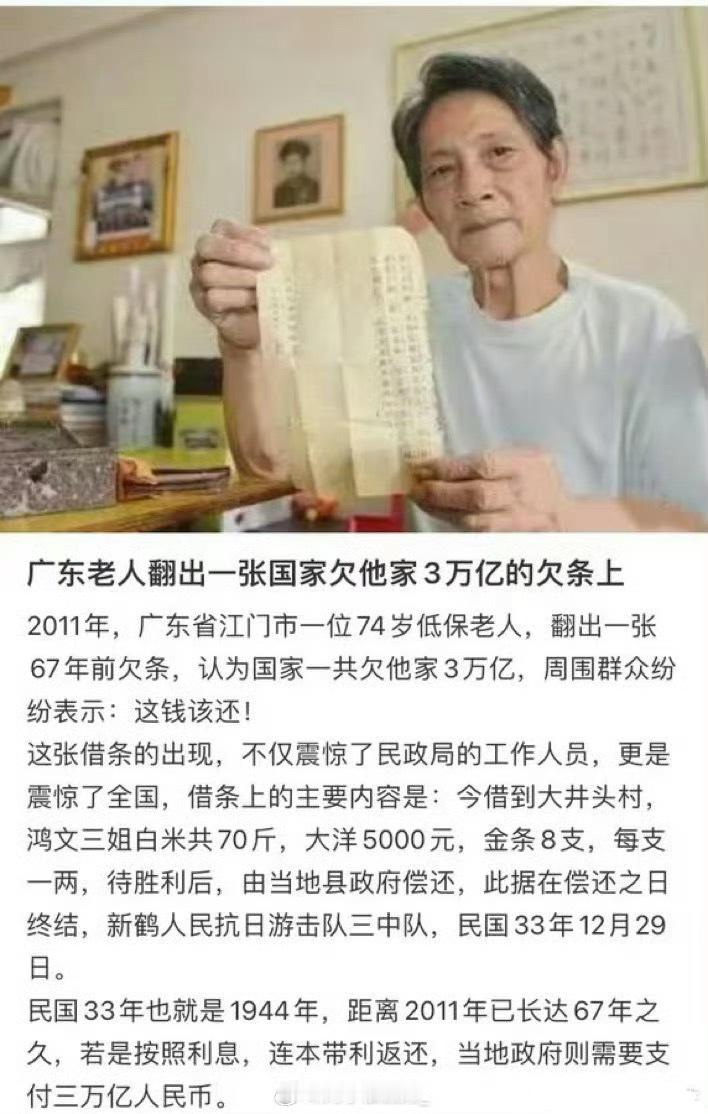 广东老人翻出一张国家欠他家3万亿的欠条上
2011年，广东省江门市一位74岁低保老人，翻出一张
67年前欠条，认为国家一共欠他家3万亿，周围群众纷
纷表示：这钱该还！
这张借条的出现，不仅震惊了民政局的工作人员，更是
震惊了全国，借条上的主要内容是：今借到大井头村，
鸿文三姐白米共70斤，大洋5000元，金条8支，每支
一两，待胜利后，由当地县政府偿还，此据在偿还之日
终结，新鹤人民抗日游击队三中队，民国33年12月29
日。
民国33年也就是1944年，距离2011年已长达67年之
久，若是按照利息，连本带利返还，当地政府则需要支
付三万亿人民币。